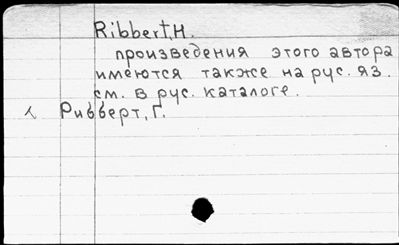 Ribbert, H.
произведения этого автора
имеются также на рус. яз.
см. в рус. каталоге.
Рибберт, Г.